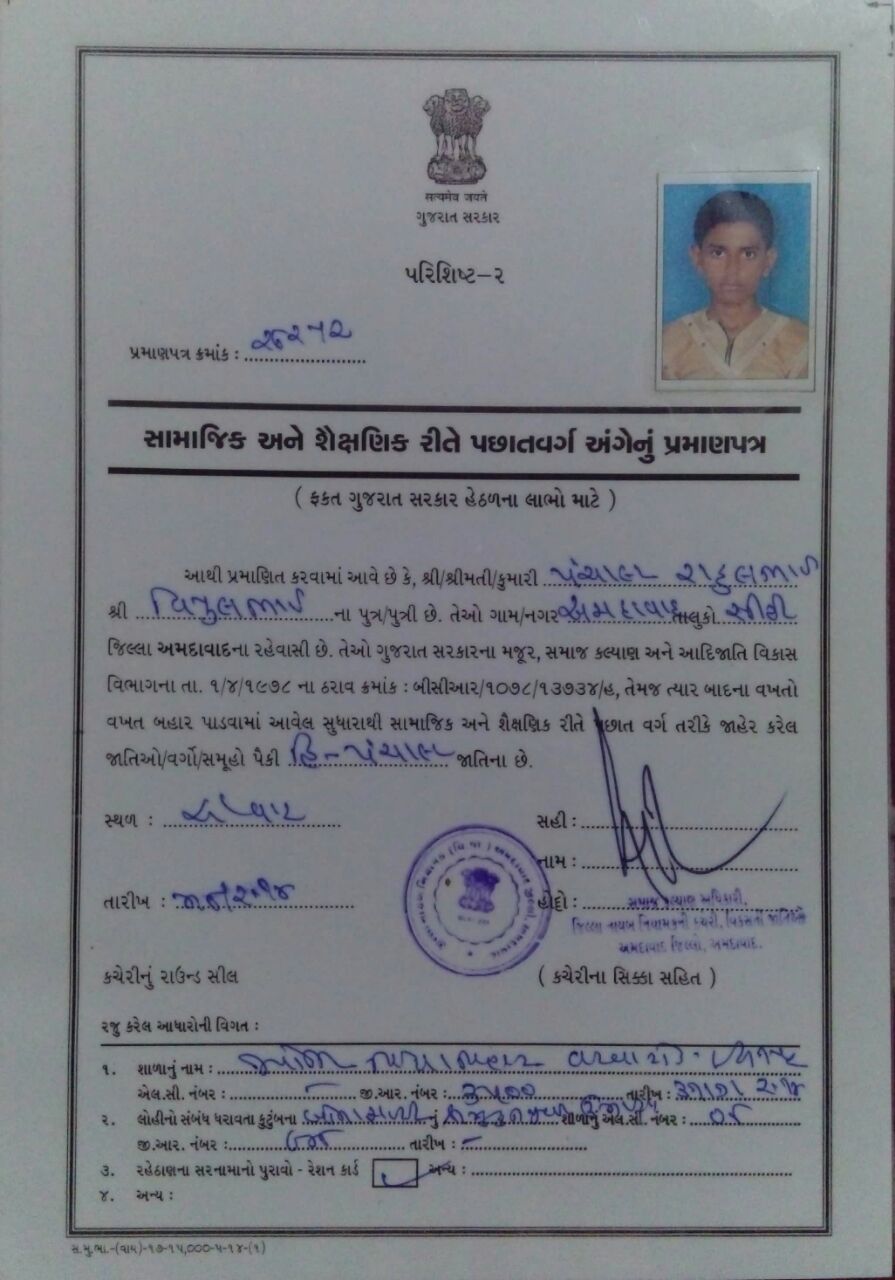 सत्यमेव जयते
ગુજરાત સરકાર
પરિશિષ્ટ-૨
પ્રમાણપત્ર ક્રમાંક :
સામાજિક અને શૈક્ષણિક રીતે પછાતવર્ગ અંગેનું પ્રમાણપત્ર
( ફકત ગુજરાત સરકાર હેઠળના લાભો માટે )
આથી પ્રમાણિત કરવામાં આવે છે કે, શ્રી/શ્રીમતી/કુમારી પંચાલ રાહુલભાઈ
શ્રી વિપુલભાઈ ના પુત્ર/પુત્રી છે. તેઓ ગામ/નગર અમદાવાદ તાલુકો સીટી
જિલ્લા અમદાવાદના રહેવાસી છે. તેઓ ગુજરાત સરકારના મજૂર, સમાજ કલ્યાણ અને આદિજાતિ વિકાસ
વિભાગના તા. ૧/૪/૧૯૭૮ ના ઠરાવ ક્રમાંક : બીસીઆર/૧૦૭૮/૧૩૭૩૪/હ, તેમજ ત્યાર બાદના વખતો
વખત બહાર પાડવામાં આવેલ સુધારાથી સામાજિક અને શૈક્ષણિક રીતે પછાત વર્ગ તરીકે જાહેર કરેલ
જાતિઓ/વર્ગો/સમૂહો પૈકી હિ-પંચાલ જાતિના છે.
સ્થળ :
સહી :
નામ :
તારીખ :
હોદ્દો : સમાજ કલ્યાણ અધિકારી,
જિલ્લા નાયબ નિયામકની કચેરી, વિકસતી જાતિ
અમદાવાદ જિલ્લો, અમદાવાદ.
કચેરીનું રાઉન્ડ સીલ
( કચેરીના સિક્કા સહિત )
રજુ કરેલ આધારોની વિગત :
૧. શાળાનું નામ :
એલ.સી. નંબર : – જી.આર. નંબર : તારીખ :
૨. લોહીનો સંબંધ ધરાવતા કુટુંબના નું શાળાનું એલ.સી. નંબર :
જી.આર. નંબર : તારીખ : –
૩. રહેઠાણના સરનામાનો પુરાવો - રેશન કાર્ડ અન્ય :
૪. અન્ય :
સ.મુ.ભા.-(વાય)-૧૭-૧૫,૦૦૦-૫-૧૪-(૧)